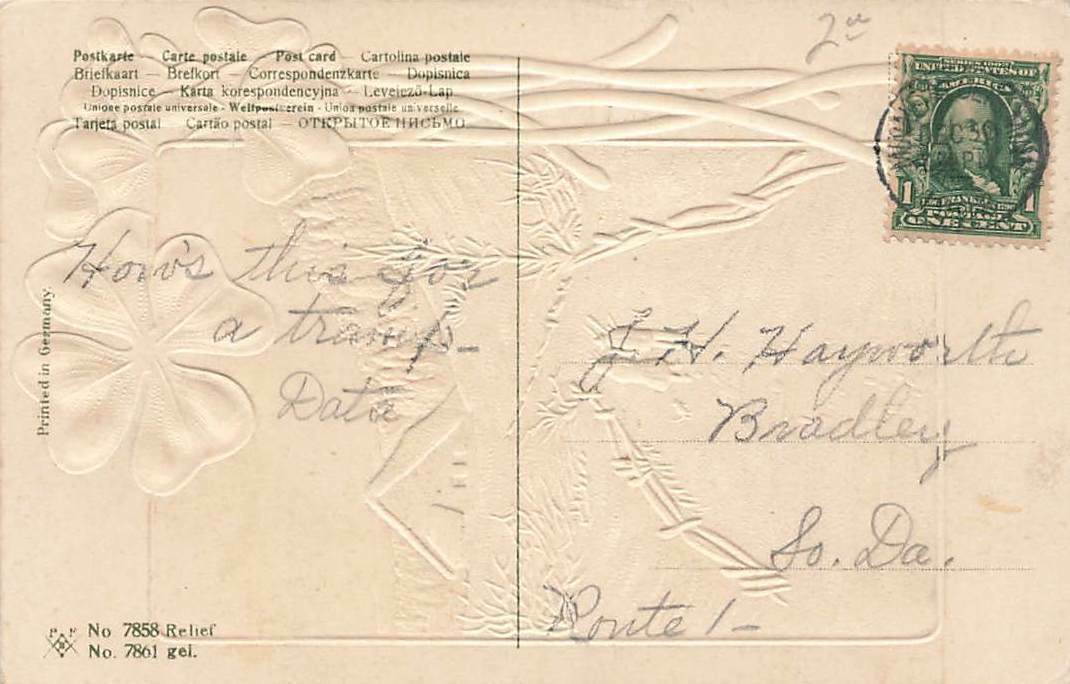 2 00
Postkarte — Carte postale — Post card — Cartolina postale
Briefkaart — Brefkort — Correspondenzkarte — Dopisnica
Dopisnice — Karta korespondencyjna — Levelező-Lap
Unione postale universale - Weltpostverein - Union postale universelle
Tarjeta postal — Cartão postal — ОТКРЫТОЕ ПИСЬМО
SERIES 1902
UNITED STATES OF
AMERICA
1 1
ONE CENT
How's this for
a tramp—
Data
J. H. Hayworth
Bradley
So. Da.
Route 1—
Printed in Germany.
P F B
No 7858 Relief
No. 7861 gel.